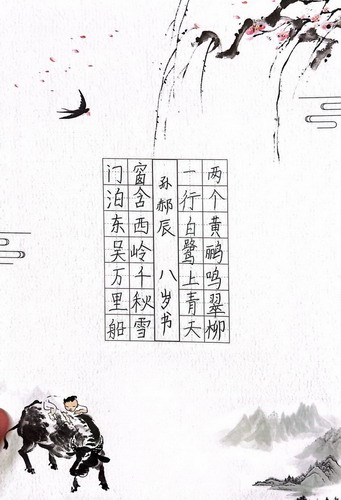 两个黄鹂鸣翠柳
一行白鹭上青天
孙郝辰 八岁书
窗含西岭千秋雪
门泊东吴万里船